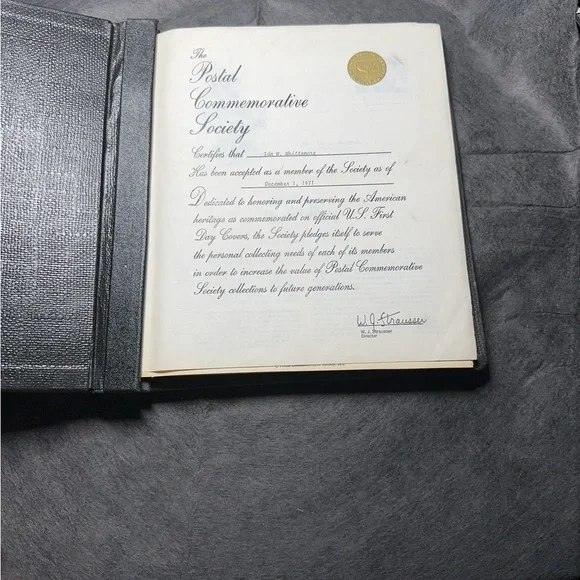 The
Postal
Commemorative
Society
Certifies that Ida M. Whittemore
Has been accepted as a member of the Society as of
December 1, 1971
Dedicated to honoring and preserving the American
heritage as commemorated on official U.S. First
Day Covers, the Society pledges itself to serve
the personal collecting needs of each of its members
in order to increase the value of Postal Commemorative
Society collections to future generations.
W. J. Strausser
W. J. Strausser
Director